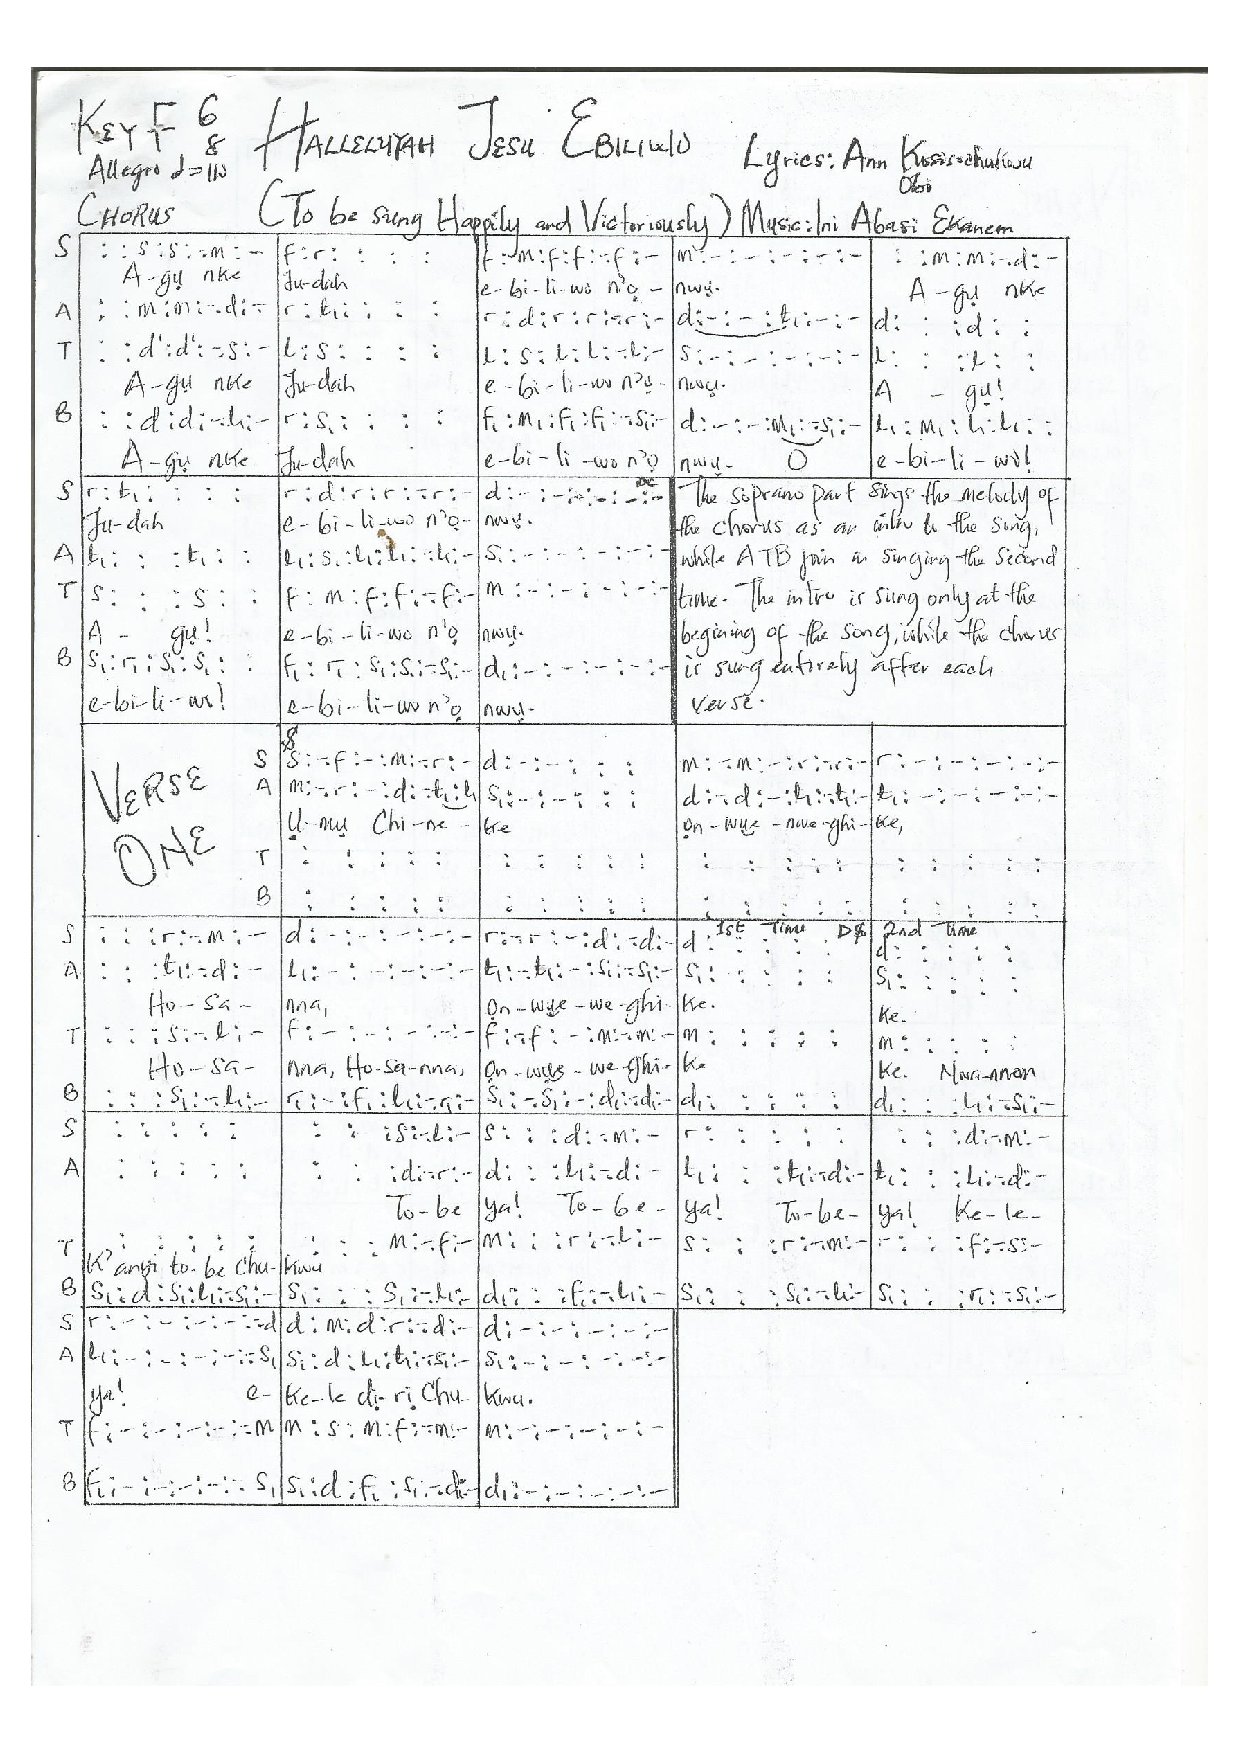 KEY F 6/8 HALLELUYAH JESU EBILIWO
Lyrics: Ann Kosisochukwu Obi
Allegro d=110
CHORUS (To be sung Happily and Victoriously) Music: Ini Abasi Ekanem
S : : s : s : - m : - f : r : : : : f : m : f : f : - f : - m : - : - : - : - : - : : m : m : - d : -
A-gụ nke Ju-dah e-bi-li-wo n'ọ-nwụ. A-gụ nke
A : : m : m : - d : - r : t₁ : : : : r : d : r : r : - r : - d : - : - : t₁ : - : - d : : : d : :
T : : d' : d' : - s : - l : s : : : : l : s : l : l : - l : - s : - : - : - : - : - l : : : l : :
A-gụ nke Ju-dah e-bi-li-wo n'ọ-nwụ. A - gụ!
B : : d : d : - l₁ : - r : s₁ : : : : f₁ : m₁ : f₁ : f₁ : - s₁ : - d : - : - : m₁ : - s₁ : - l₁ : m₁ : l₁ : l₁ : :
A-gụ nke Ju-dah e-bi-li-wo n'ọ nwụ- O e-bi-li-wo!
S r : t₁ : : : : r : d : r : r : - r : - d : - : - : - : - : - DC
Ju-dah e-bi-li-wo n'ọ- nwụ.
A l₁ : : : t₁ : : l₁ : s₁ : l₁ : l₁ : - l₁ : - s₁ : - : - : - : - : -
T s : : : s : : f : m : f : f : - f : - m : - : - : - : - : -
A - gụ! e-bi-li-wo n'ọ nwụ.
B s₁ : r₁ : s₁ : s₁ : : f₁ : r₁ : s₁ : s₁ : - s₁ : - d₁ : - : - : - : - : -
e-bi-li-wo! e-bi-li-wo n'ọ nwụ.
The soprano part sings the melody of
the chorus as an intro to the song,
while ATB join in singing the second
time. The intro is sung only at the
begining of the song, while the chorus
is sung entirely after each
verse.
VERSE
ONE
S s : - f : - : m : - r : - d : - : - : : : m : - m : - : r : - r : - r : - : - : - : - : -
A m : - r : - : d : - t₁ : l₁ s₁ : - : - : : : d : - d : - : t₁ : - t₁ : - t₁ : - : - : - : - : -
Ụ-mụ Chi-ne-ke ọn-wụe-nwe-ghi-ke,
T : : : : : : : : : : : : : : : : : : : :
B : : : : : : : : : : : : : : : : : : : :
1st Time D𝄋 2nd time
S : : : r : - m : - d : - : - : - : - : - r : - r : - : d : - d : - d : : : : : d : : : : :
A : : : t₁ : - d : - l₁ : - : - : - : - : - t₁ : - t₁ : - : s₁ : - s₁ : - s₁ : : : : : s₁ : : : : :
Ho-sa- nna, ọn-wụe-we-ghi-ke. ke.
T : : : s : - l : - f : - : - : - : - : - f : - f : - : m : - m : - m : : : : : m : : : : :
Ho-sa- nna, Ho-sa-nna, ọn-wụe-we-ghi-ke ke. Nwa-nnem
B : : : s₁ : - l₁ : - r₁ : - : f₁ : l₁ : - r₁ : - s₁ : - s₁ : - : d₁ : - d₁ : - d₁ : : : : : d₁ : : : l₁ : - s₁ : -
S : : : : : : : : s : - l : - s : : : d : - m : - r : : : : : : : : d : - m : -
A : : : : : : : : d : - r : - d : : : l₁ : - d : - l₁ : : : t₁ : - d : - t₁ : : : l₁ : - d : -
To-be ya! To-be- ya! To-be- ya! Ke-le-
T : : : : : : : : m : - f : - m : : : r : - l : - s : : : r : - m : - r : : : f : - s : -
K'anyi to-be Chu-kwu
B s₁ : d : s₁ : l₁ : - s₁ : - s₁ : : : s₁ : - l₁ : - d₁ : : : f₁ : - l₁ : - s₁ : : : s₁ : - l₁ : - s₁ : : : r₁ : - s₁ : -
S r : - : - : - : - : - d d : m : d : r : - d : - d : - : - : - : - : -
A l₁ : - : - : - : - : - s₁ s₁ : d : l₁ : t₁ : - s₁ : - s₁ : - : - : - : - : -
ya! e- ke-le dị-rị Chu- kwu.
T f : - : - : - : - : - m m : s : m : f : - m : - m : - : - : - : - : -
B f₁ : - : - : - : - : - s₁ s₁ : d : f₁ : s₁ : - d : - d₁ : - : - : - : - : -